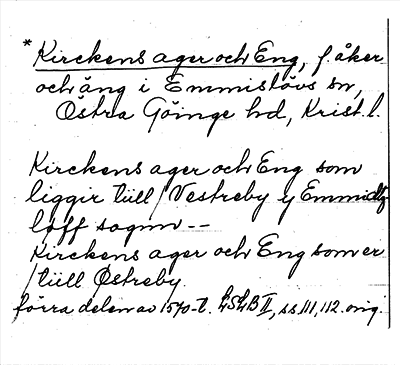 * Kirckens ager och Eng, f. åker
och äng i Emmislövs sn,
Östra Göinge hd, Krist. l.
Kirckens ager och Eng som
liggir tüll / Vestreby y Emmidtz
löff sognn --
Kirckens ager och Eng som er
/ tüll Östreby.
förra delen av 1570-t. LSLB II, ss 111, 112. orig.